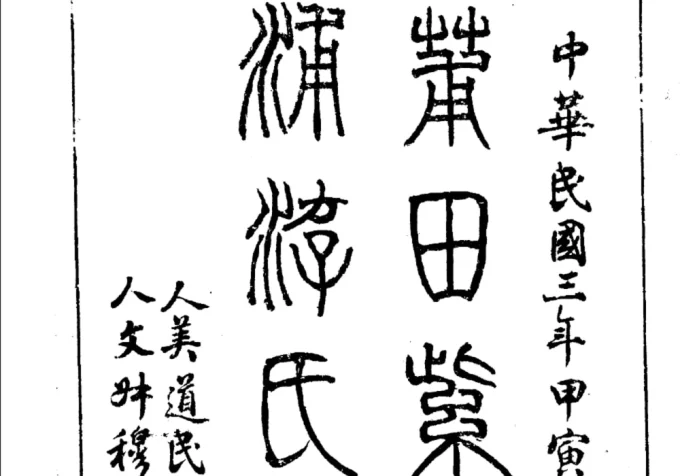 中華民國三年甲寅
莆田紫
浦游氏
人美道民
人文穆